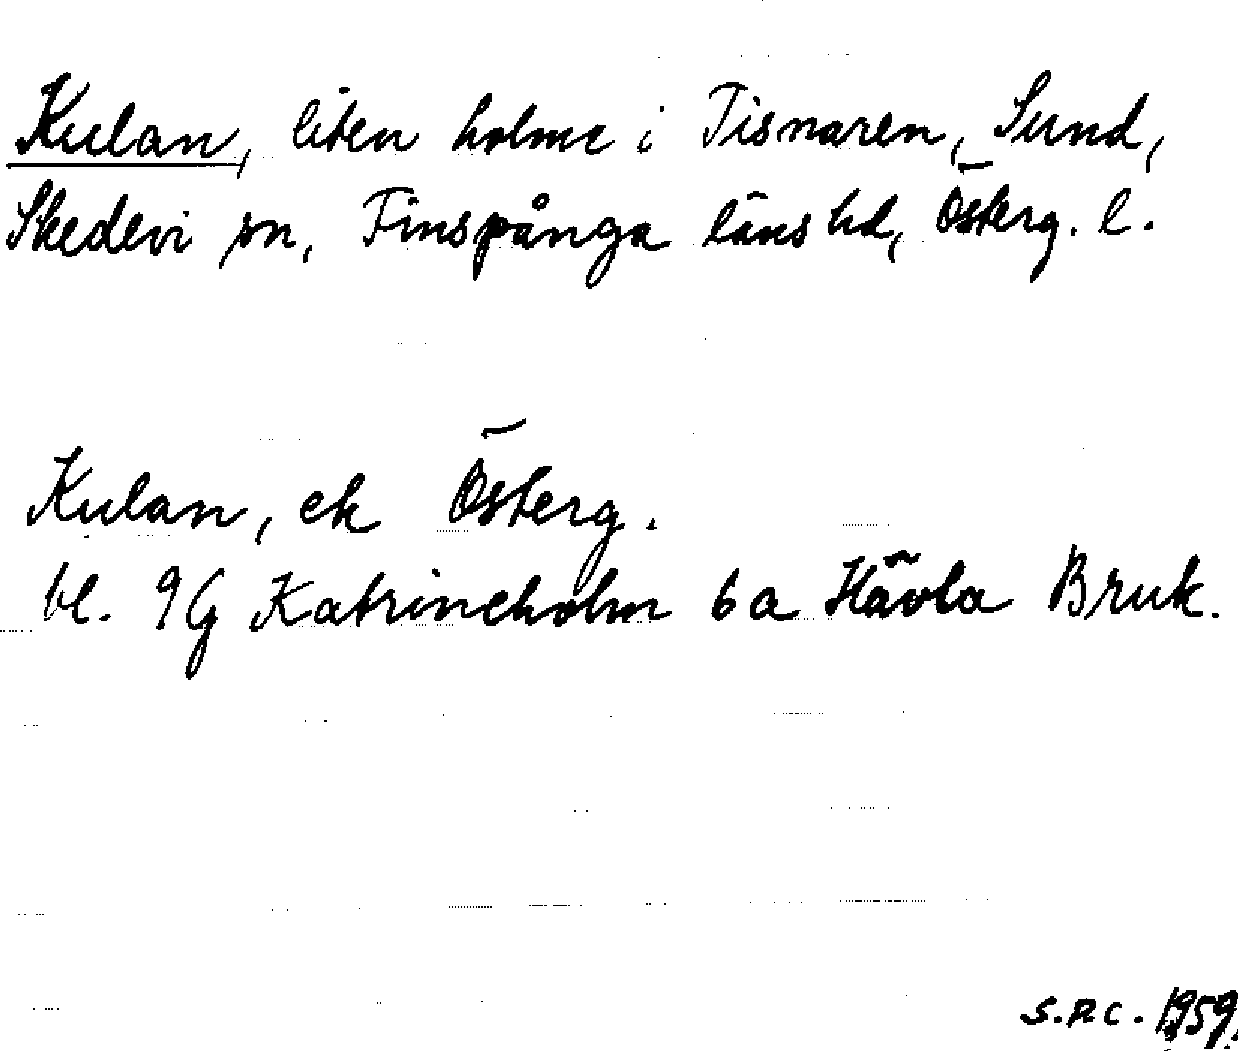 Kulan, liten holme i Tisnaren, Sund,
Skedevi sn, Finspånga läns hd, Österg. l.
Kulan, ek Österg.
bl. 9G Katrineholm 6a Hävla Bruk.
S.R.C. 1959.